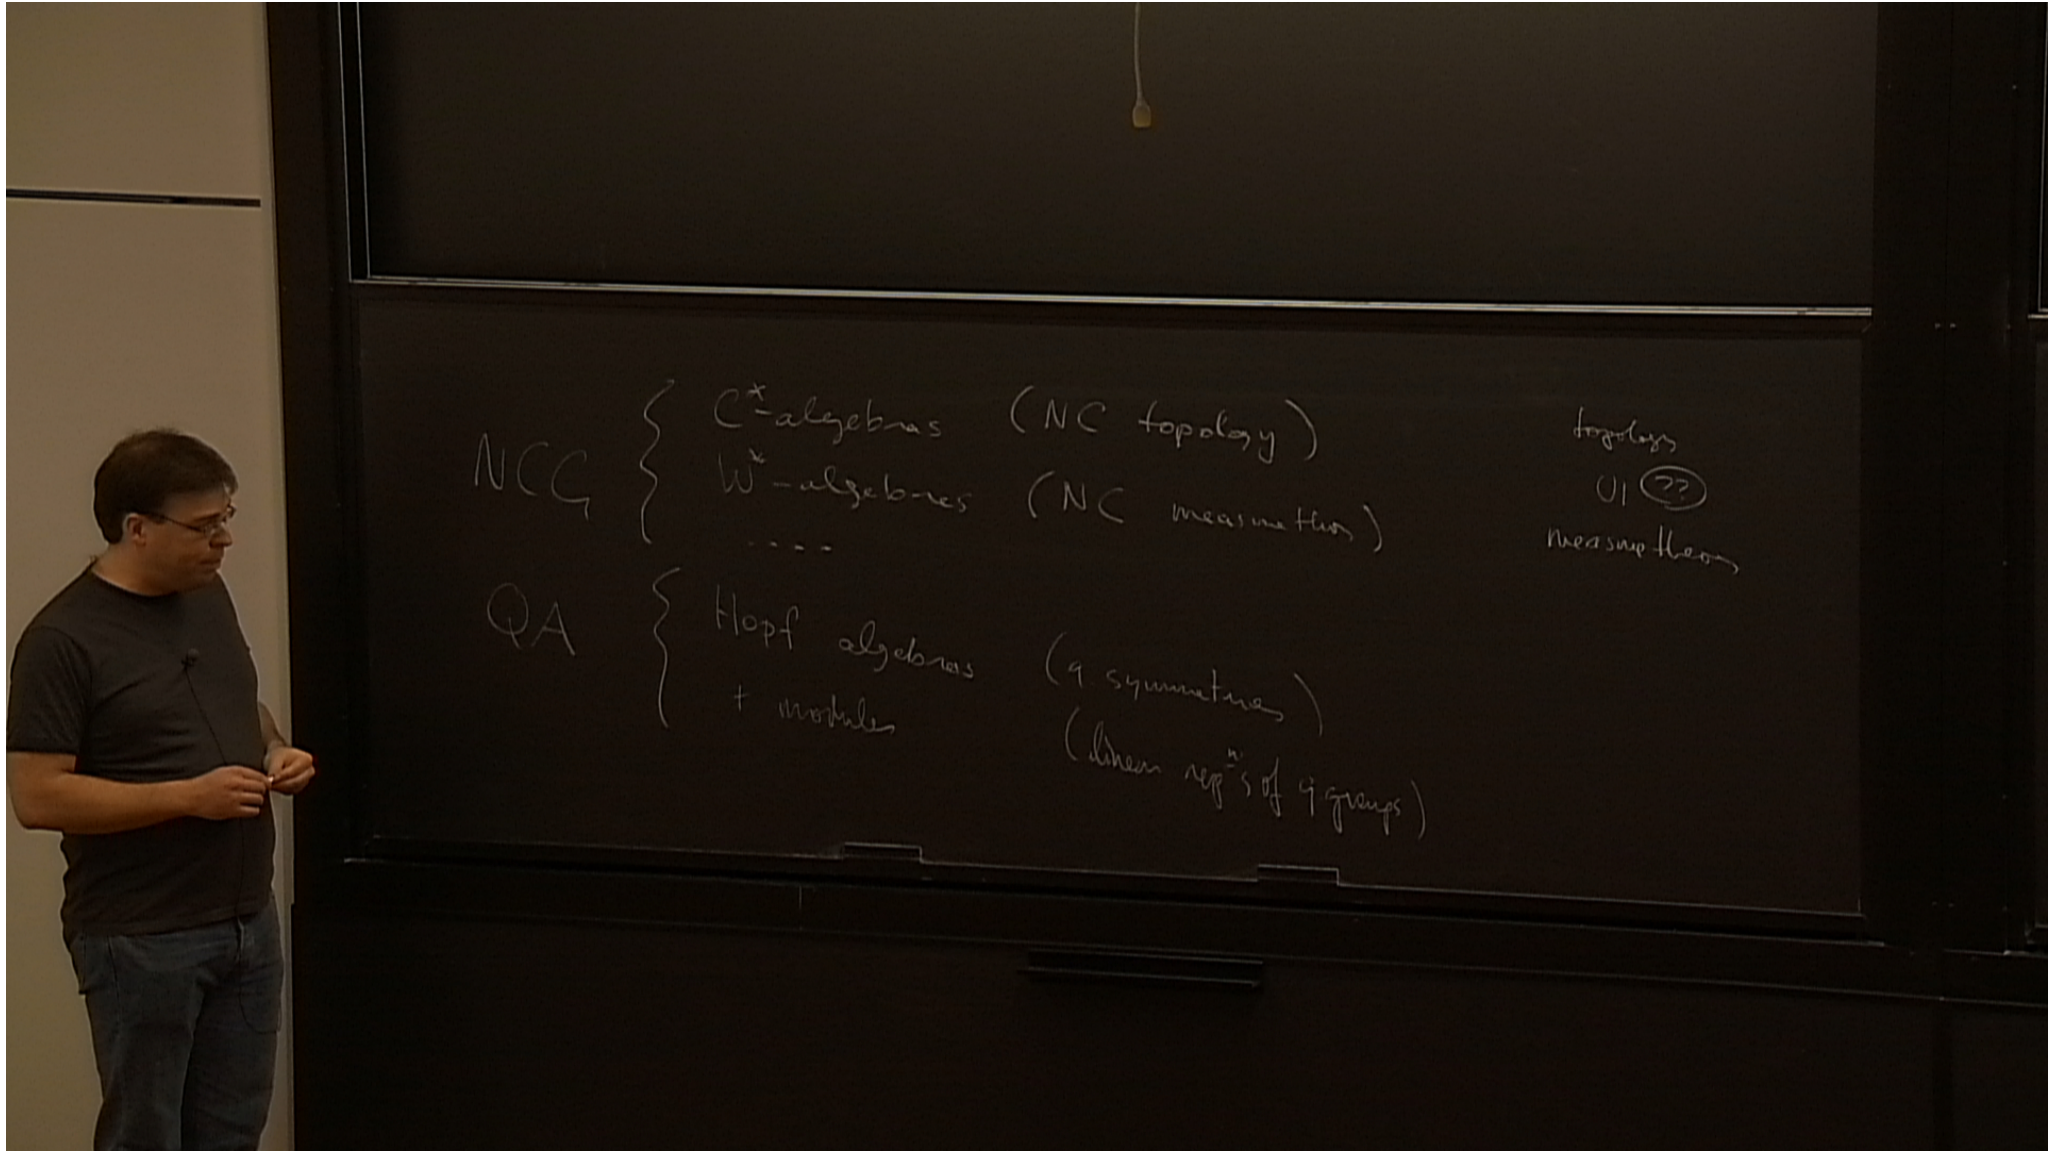 NCG { C*-algebras (NC topology)
W*-algebras (NC measure theory)
....
QA { Hopf algebras (q symmetries)
+ modules (linear repⁿ's of q groups)
topology
U| ??
measure theory